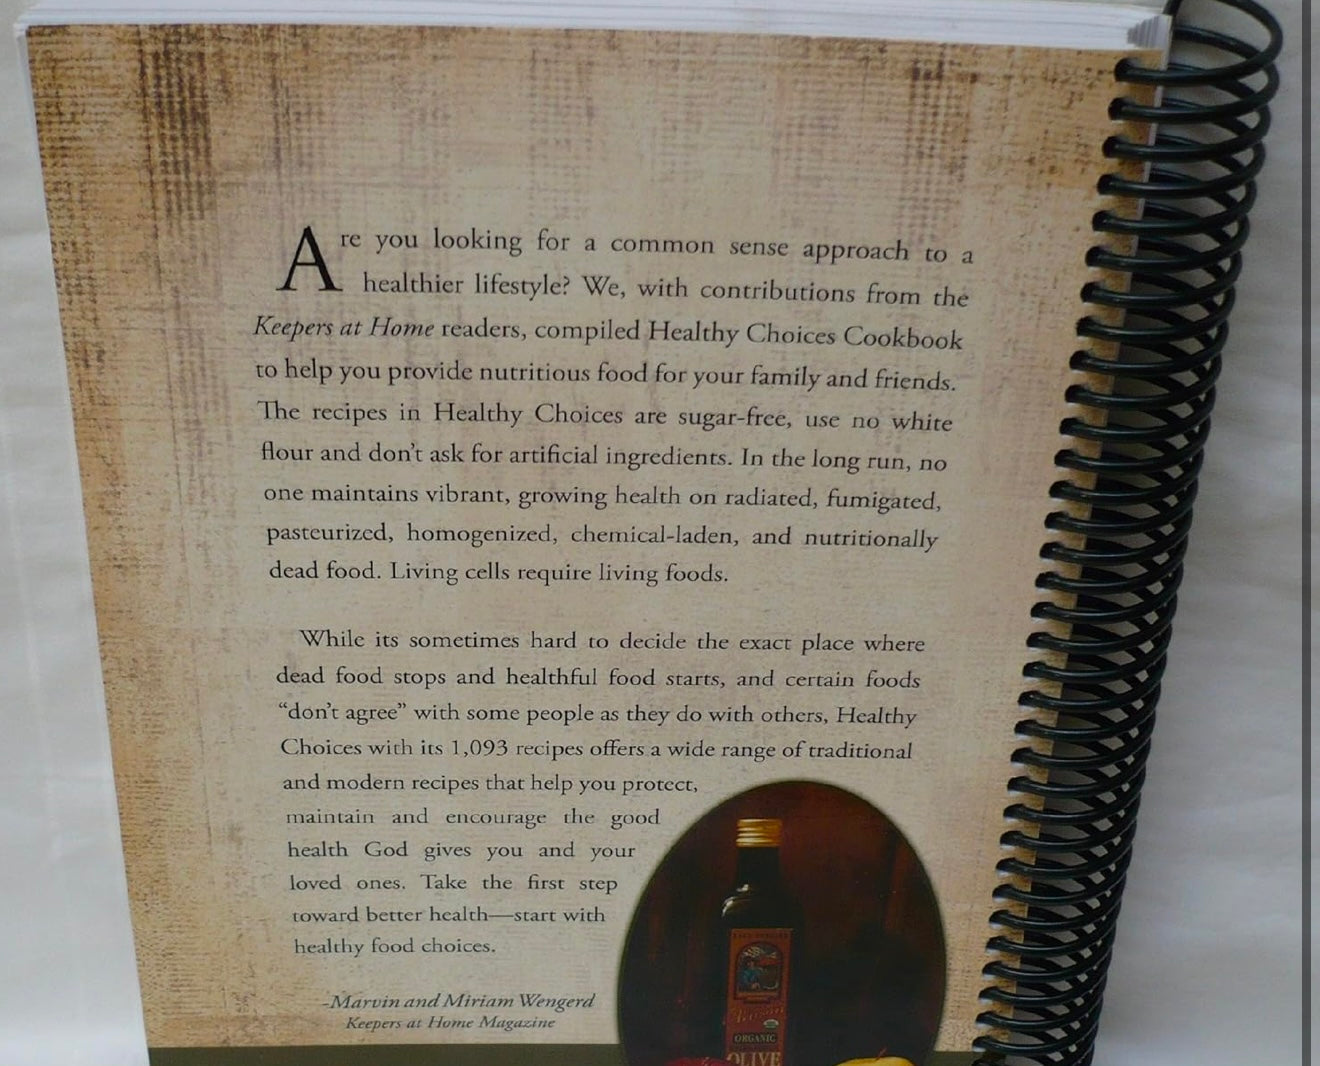 Are you looking for a common sense approach to a
healthier lifestyle? We, with contributions from the
Keepers at Home readers, compiled Healthy Choices Cookbook
to help you provide nutritious food for your family and friends.
The recipes in Healthy Choices are sugar-free, use no white
flour and don't ask for artificial ingredients. In the long run, no
one maintains vibrant, growing health on radiated, fumigated,
pasteurized, homogenized, chemical-laden, and nutritionally
dead food. Living cells require living foods.
While its sometimes hard to decide the exact place where
dead food stops and healthful food starts, and certain foods
“don't agree” with some people as they do with others, Healthy
Choices with its 1,093 recipes offers a wide range of traditional
and modern recipes that help you protect,
maintain and encourage the good
health God gives you and your
loved ones. Take the first step
toward better health—start with
healthy food choices.
-Marvin and Miriam Wengerd
Keepers at Home Magazine
ORGANIC
OLIVE